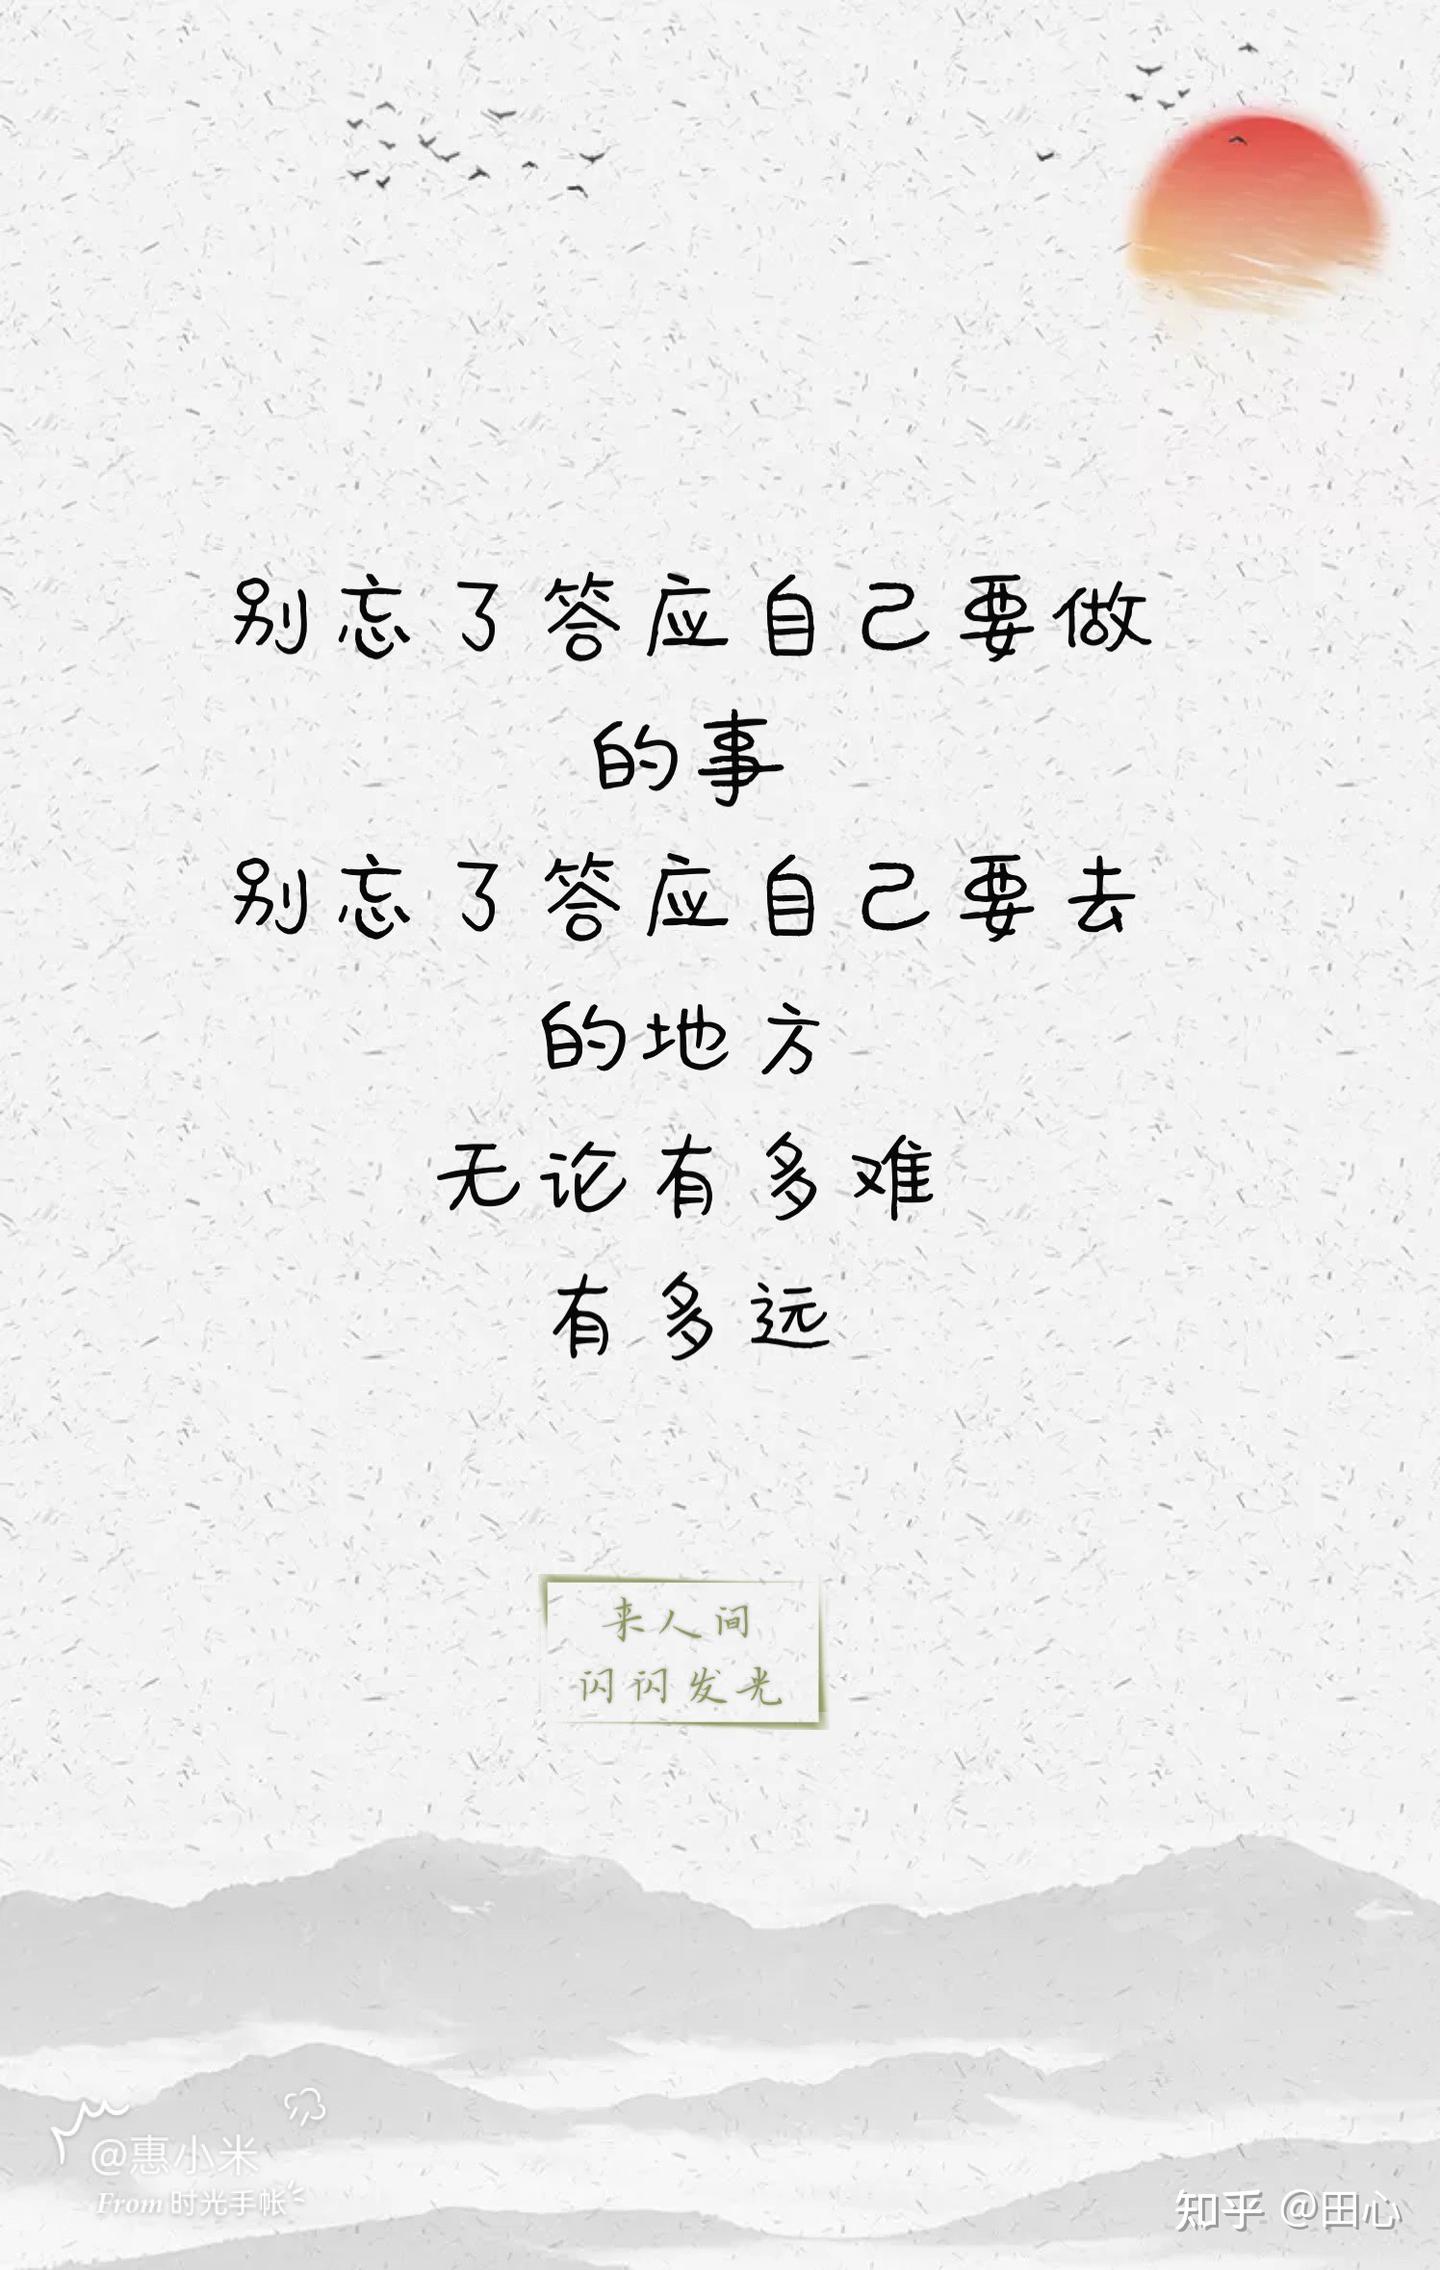 别忘了答应自己要做
的事
别忘了答应自己要去
的地方
无论有多难
有多远
来人间
闪闪发光
@惠小米
From 时光手帐
知乎 @田心